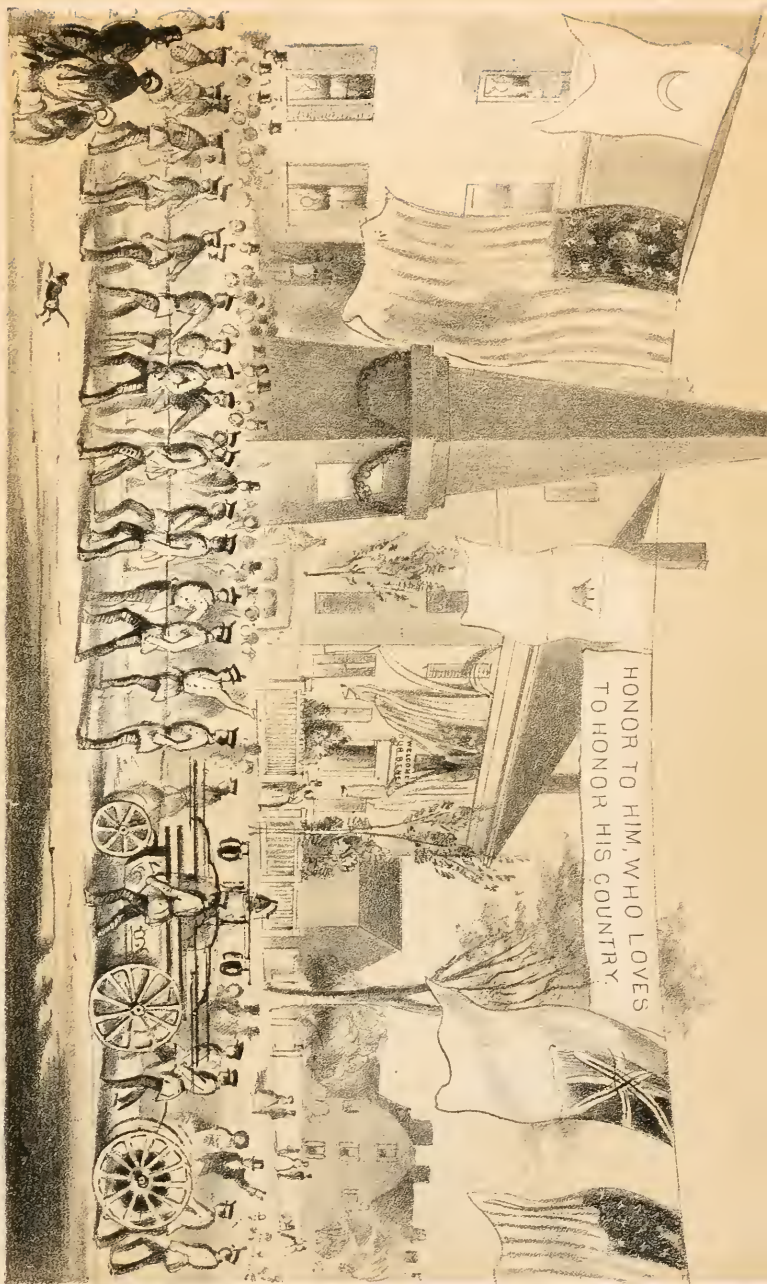 HONOR TO HIM, WHO LOVES
TO HONOR HIS COUNTRY.
WELCOME
OUR